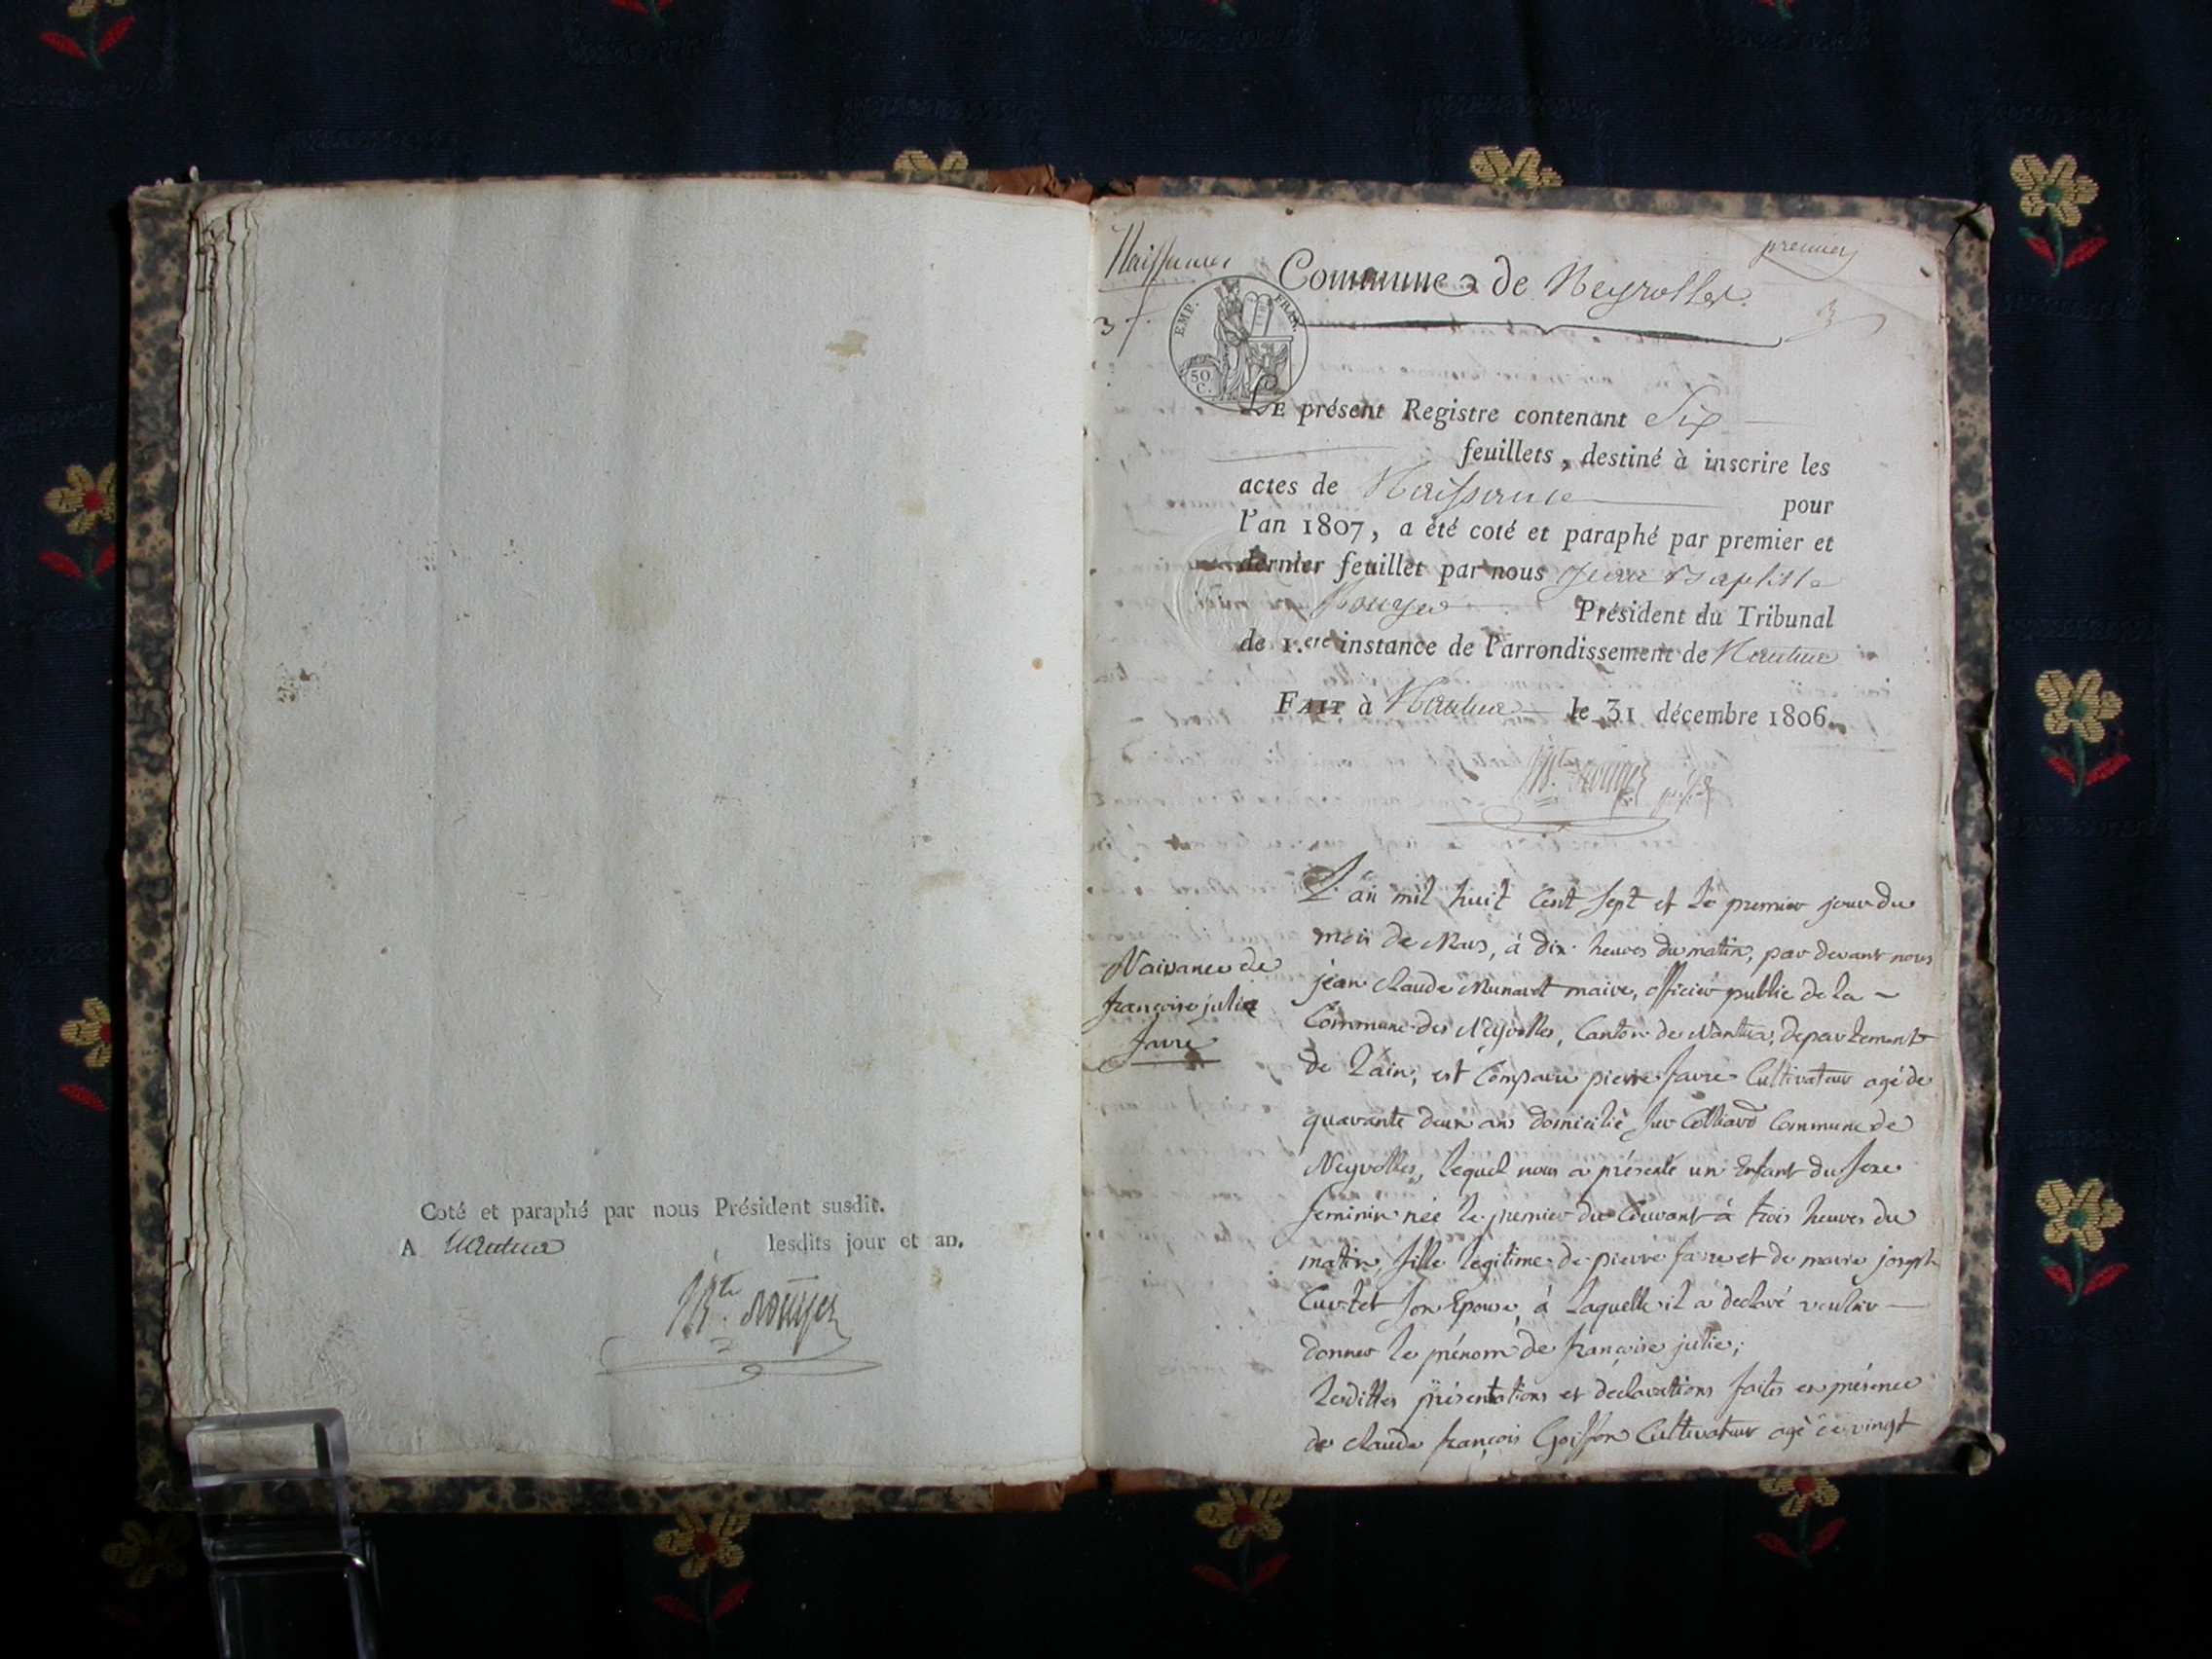 Coté et paraphé par nous Président susdit.
A Nantua lesdits jour et an.
Bte. Rouyer
Naissances
premier
Commune de Neyrolles.
EMP. FRAN.
50 C.
LE présent Registre contenant Six
feuillets, destiné à inscrire les
actes de Naissance pour
l'an 1807, a été coté et paraphé par premier et
dernier feuillet par nous Jean Baptiste
Rouyer Président du Tribunal
de 1.ere instance de l'arrondissement de Nantua
FAIT à Nantua le 31 décembre 1806.
Bte. Rouyer
Naisance de
françoise julie
favre
L'an mil huit Cent Sept et le premier jour du
mois de Mars, à dix heures du matin, par devant nous
jean Claude Munaret maire, officier public de la
Commune des Neyrolles, Canton de Nantua, departement
de L'ain, est Comparu pierre favre Cultivateur agé de
quarante deux ans domicilié sur Colliard Commune de
Neyrolles, lequel nous a présenté un Enfant du sexe
feminin née le premier du Courant à trois heures du
matin, fille legitime de pierre favre et de marie joseph
Curtet son Epouse, à Laquelle il a declaré vouloir
donner le prénom de françoise julie;
Lesdittes présentations et declarations faites en présence
de claude françois Goiffon Cultivateur agé de vingt